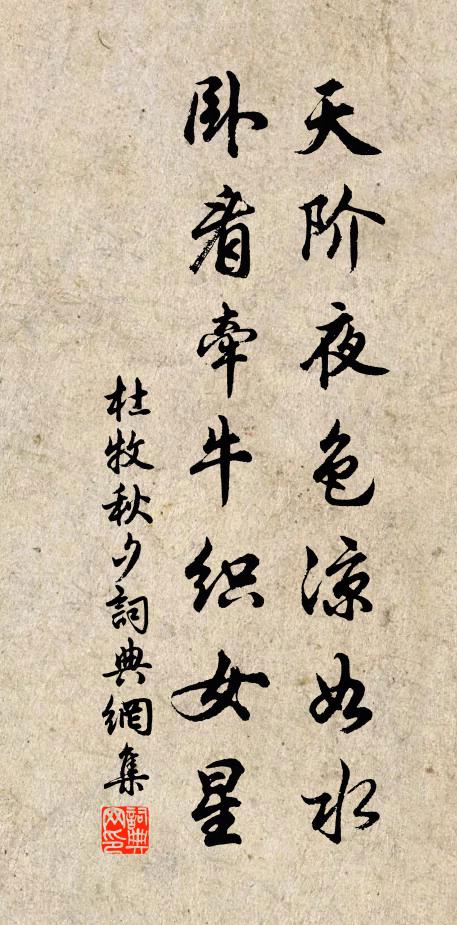 天阶夜色凉如水
卧看牵牛织女星
杜牧秋夕詞典網集
詞典网印